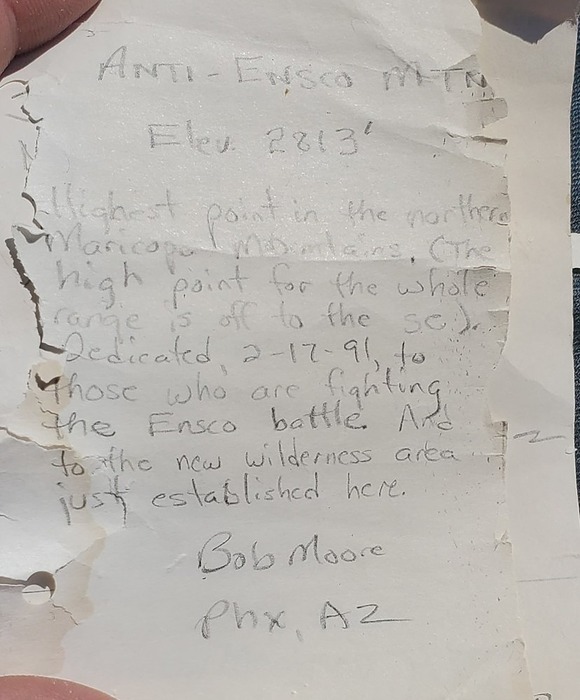 ANTI-ENSCO MTN
Elev. 2813'
Highest point in the northern
Maricopa Mountains. (The
high point for the whole
range is off to the se).
Dedicated, 2-17-91, to
those who are fighting
the Ensco battle. And
to the new wilderness area
just established here.
Bob Moore
Phx, AZ